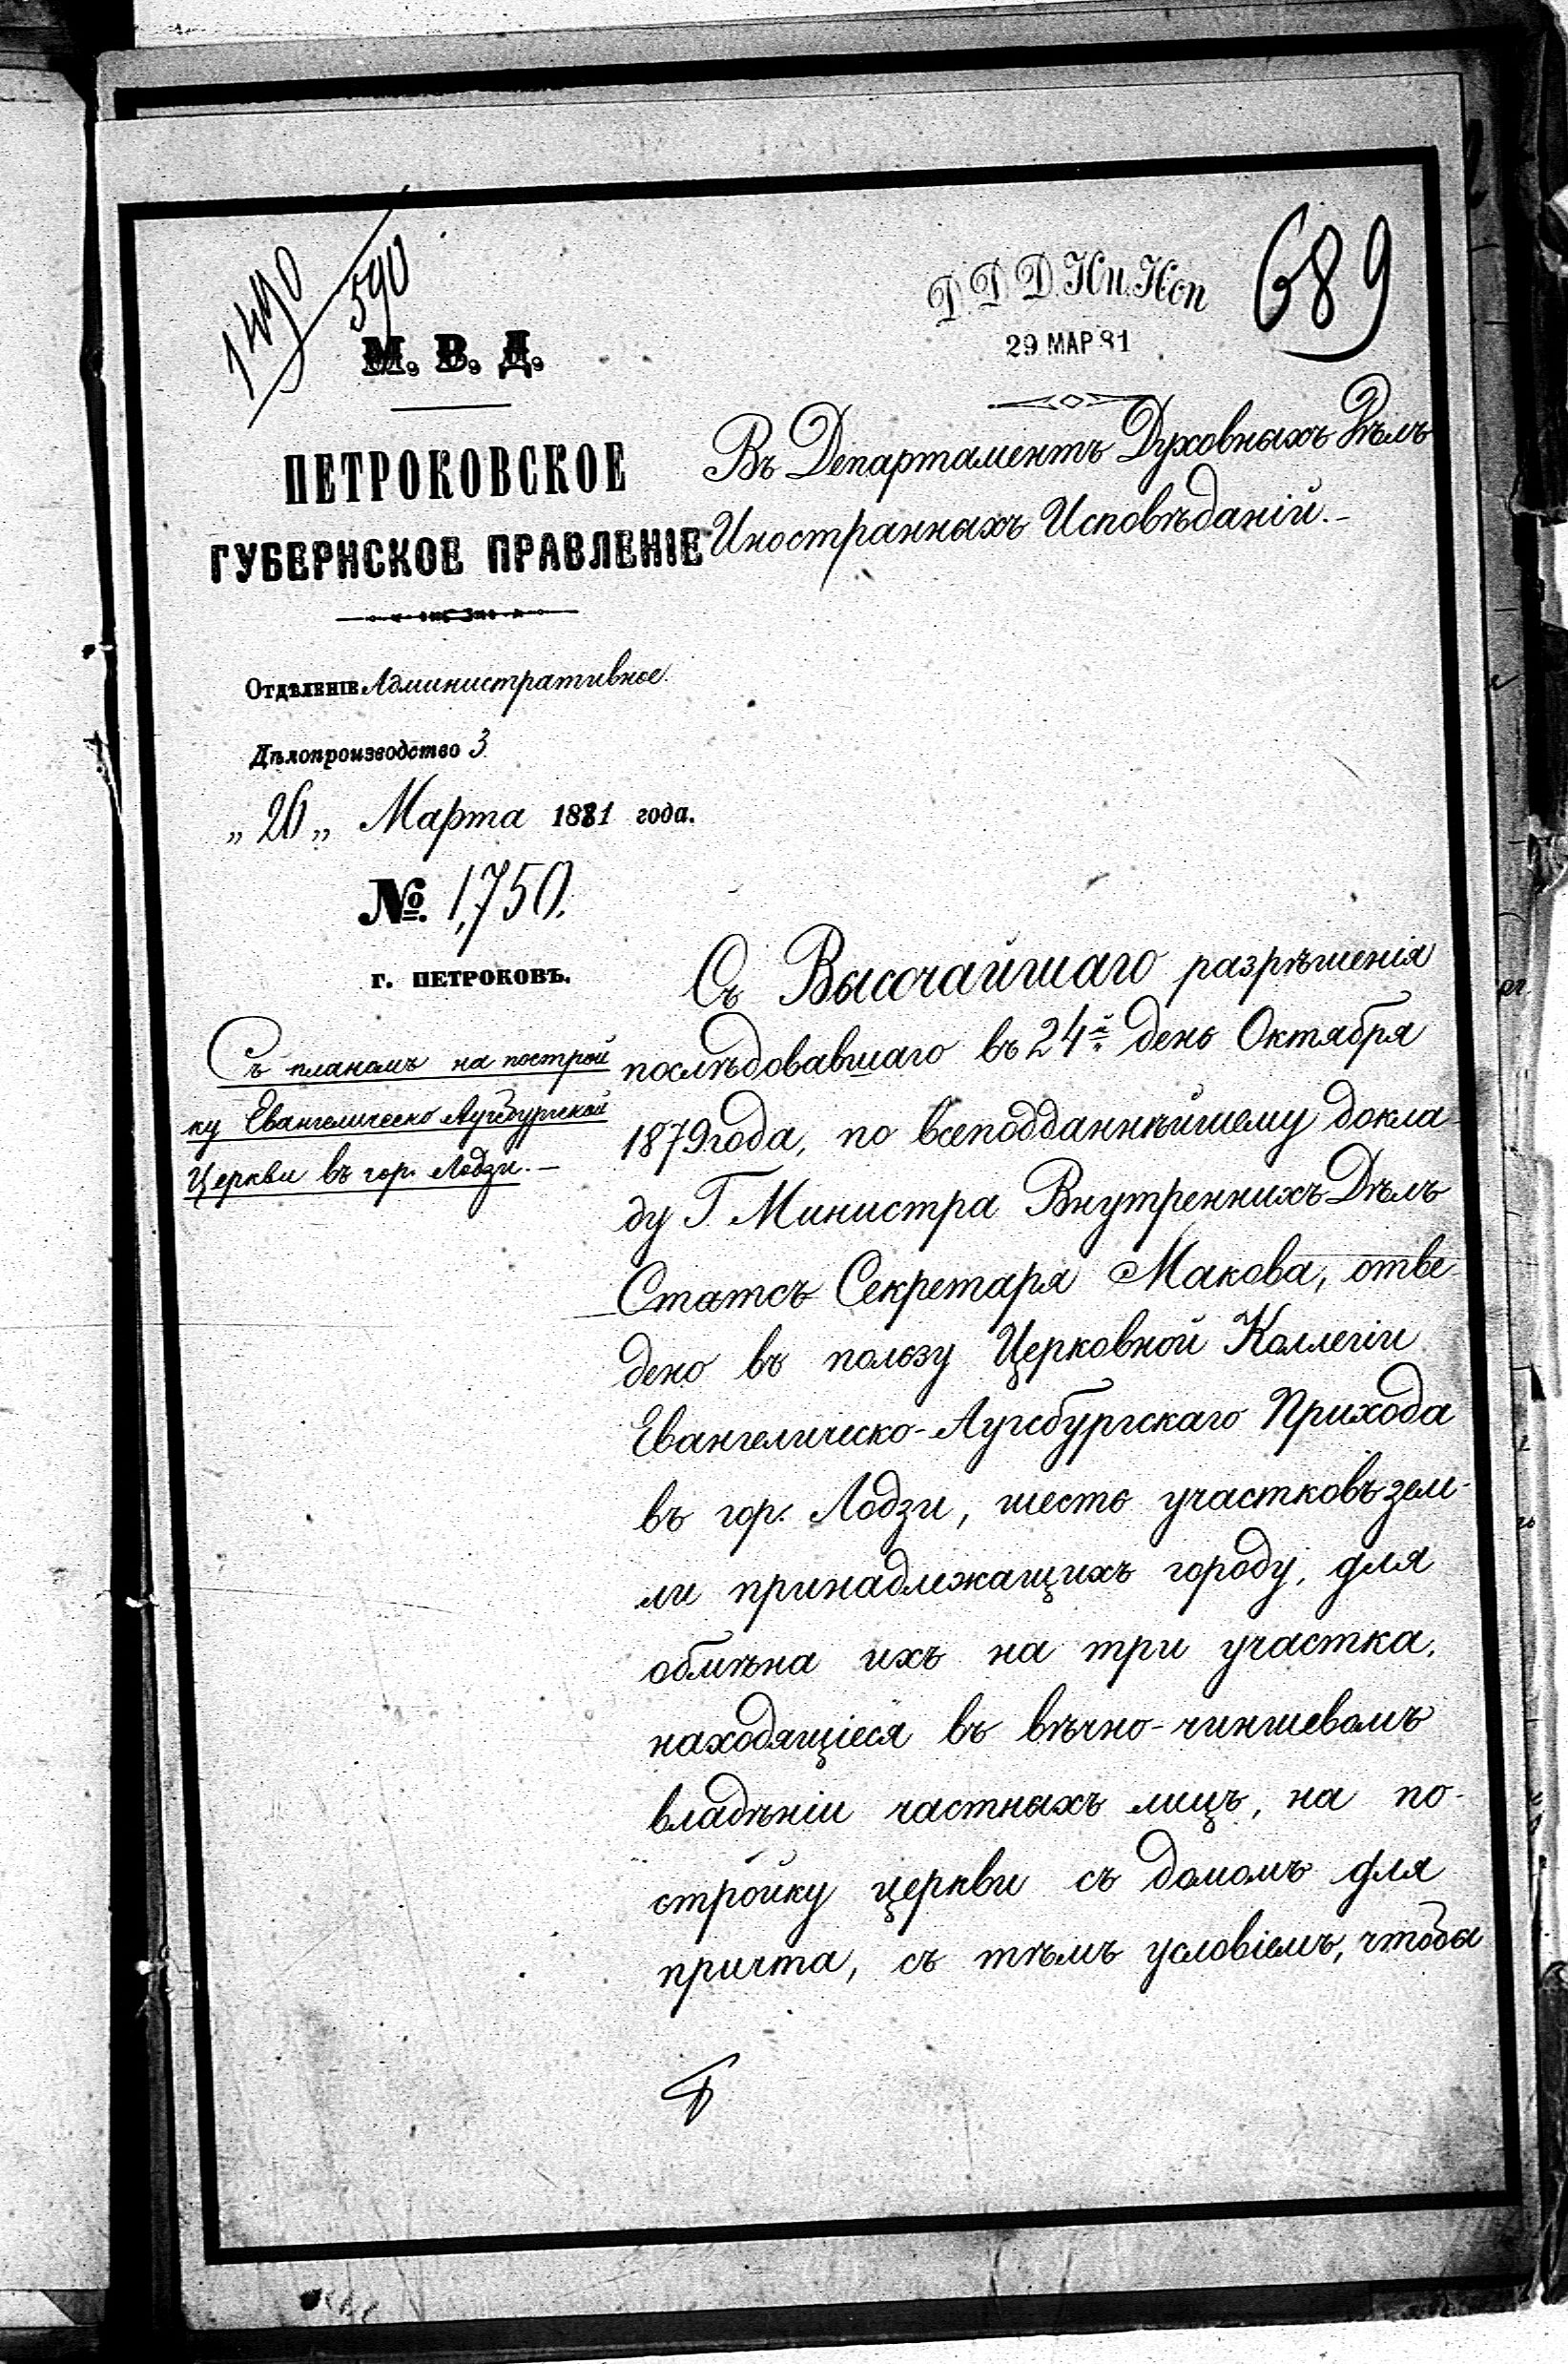 1490/590
М. В. Д.
ПЕТРОКОВСКОЕ
ГУБЕРНСКОЕ ПРАВЛЕНІЕ
Отдѣленіе Административное.
Дѣлопроизводство 3
„26„ Марта 1881 года.
№ 1,750.
г. ПЕТРОКОВЪ.
Съ планомъ на построй
ку Евангелическо Аугсбургской
Церкви въ гор. Лодзи.—
Д. Д. Д. Ин. Исп
689
29 МАР 81
Въ Департаментъ Духовныхъ Дѣлъ
Иностранныхъ Исповѣданій.—
Съ Высочайшаго разрѣшенія
послѣдовавшаго въ 24й день Октября
1879 года, по всеподданнѣйшему докла
ду Г. Министра Внутреннихъ Дѣлъ
Статсъ Секретаря Макова, отве
дено въ пользу Церковной Коллегіи
Евангелическо-Аугсбургскаго Прихода
въ гор. Лодзи, шесть участковъ зем-
ли принадлежащихъ городу, для
обмѣна ихъ на три участка,
находящіеся въ вѣчно-чиншевомъ
владѣніи частныхъ лицъ, на по-
стройку церкви съ домомъ для
причта, съ тѣмъ условіемъ, чтобы